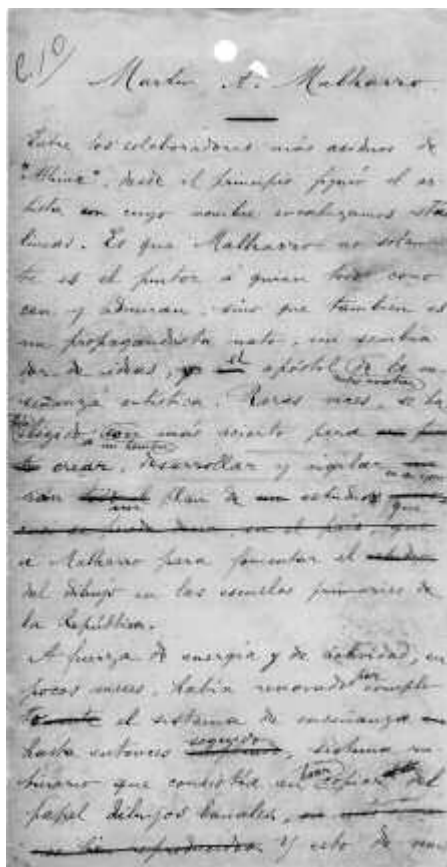 Martin A. Malharro
Entre los colaboradores más asiduos de
"Athinae", desde el principio figuró el ar
tista con cuyo nombre encabezamos estas
líneas. Es que Malharro no solamen
te es el pintor á quien todos cono
cen y admiran, sino que tambien es
un propagandista nato, un sembra
dor de ideas, el apóstol de la en
señanza artística. Raras veces, se ha
elegido á un hombre con más acierto para
crear, desarrollar y vigilar
plan de estudios que
á Malharro para fomentar el
del dibujo en las escuelas primarias de
la República.
A fuerza de energía y de actividad, en
pocos meses, había renovado por comple
to el sistema de enseñanza
hasta entonces seguido, sistema ru
tinario que consistía en copiar del
papel dibujos banales,
Y esto de una